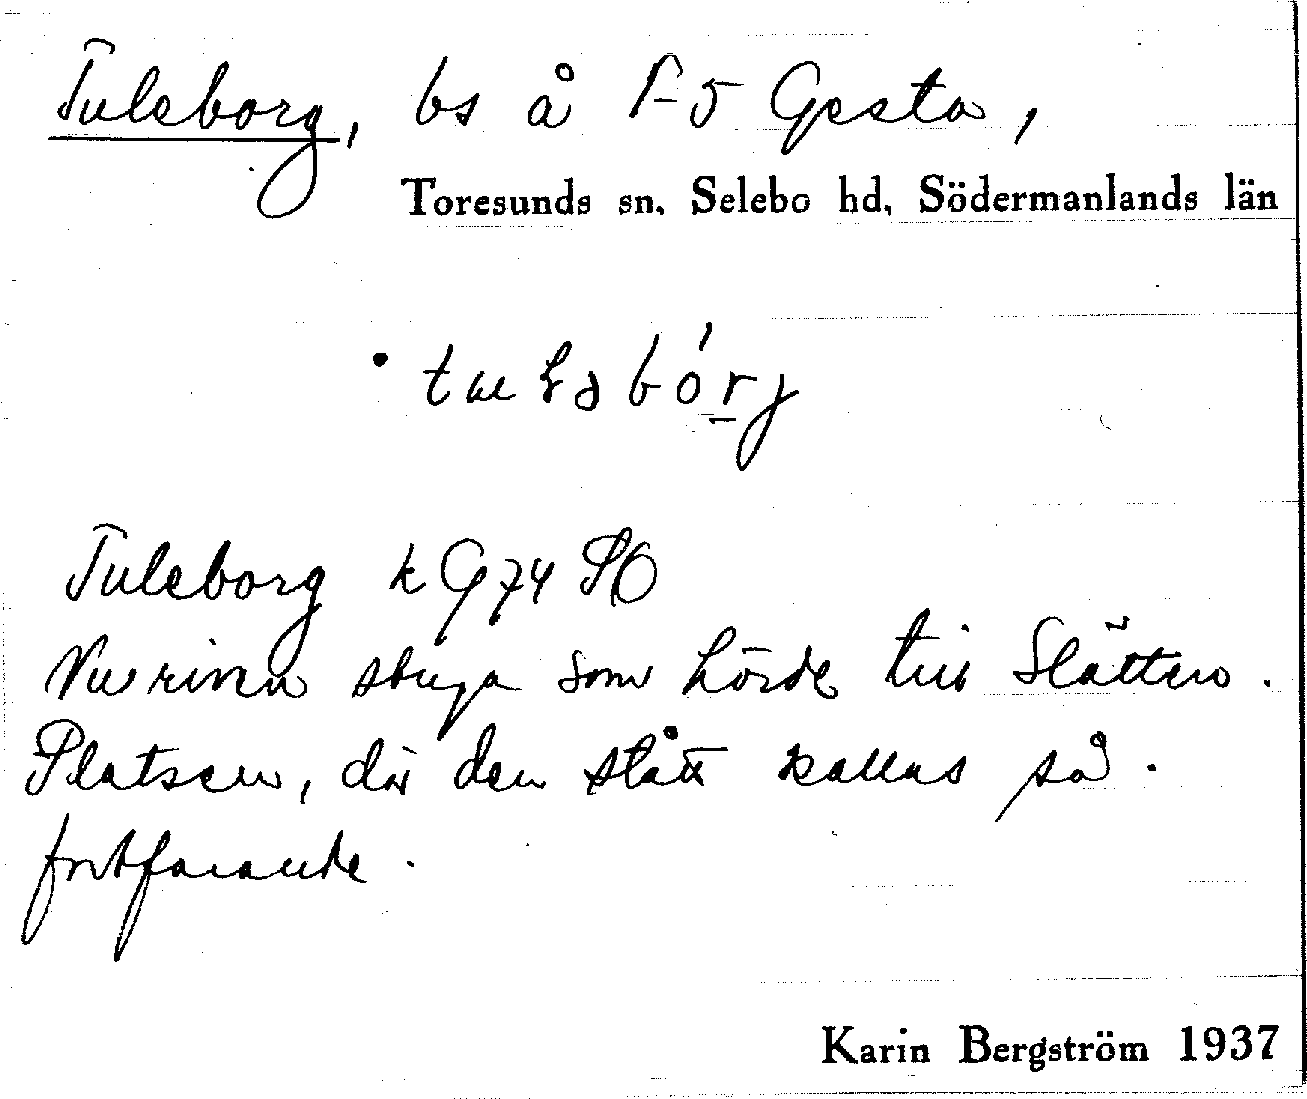 Tuleborg, bs å 1-5 Gesta,
Toresunds sn. Selebo hd, Södermanlands län
Tuleborg k G74 SO
Nu riven stuga som hörde till Slätten.
Platsen, där den stått kallas så
fortfarande.
Karin Bergström 1937